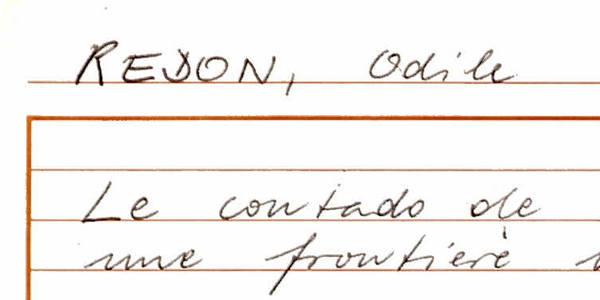 REDON, Odile
Le contado de
une frontière